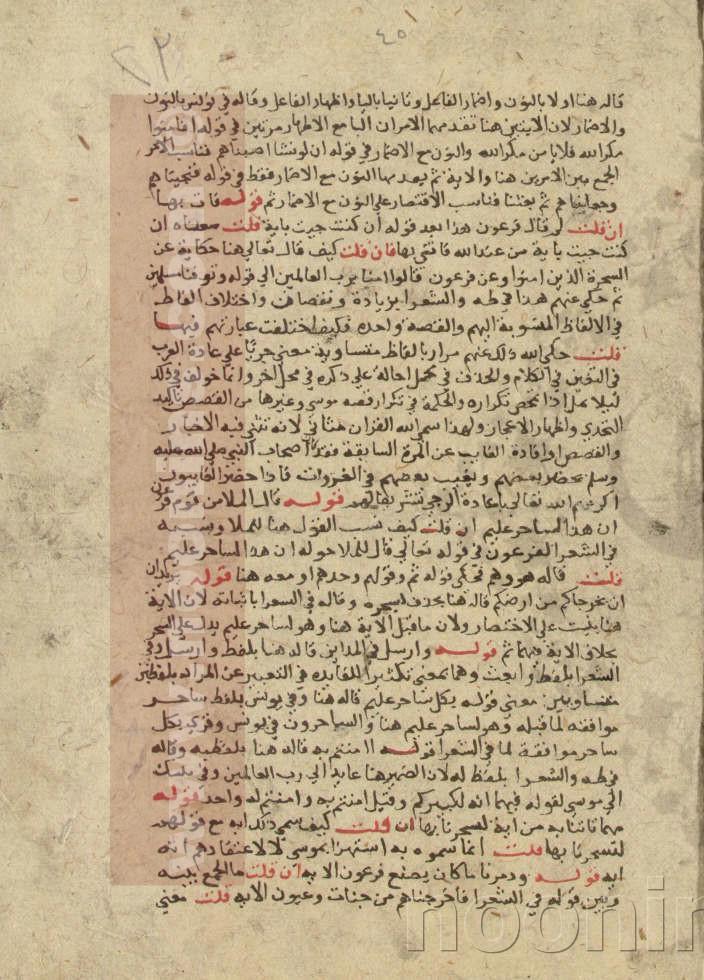 ٤٥
٢٣
قاله هنا اولا بالنون واضمار الفاعل وثانيا باليا واظهار الفاعل وقاله في يونس بالنون
والاضمار لان الايتين هنا تقدمهما الامران اليا مع الاظهار مرتين في قوله افامنوا
مكر الله فلا يا من مكر الله والنون مع الاضمار في قوله ان لو نشا اصبناهم فناسب الامر
الجمع بين الامرين هنا والاية ثم تقدمها النون مع الاضمار فقط في قوله فنجيناهم
وجعلناهم ثم بعثنا فناسب الاقتصار علي النون مع الاضمار ثم قوله فات بها
ان قلت لم قال فرعون هذا بعد قوله ان كنت جيت باية قلت معناه ان
كنت جيت باية من عند الله فاتني بها فان قلت كيف قال تعالي هنا حكاية عن
السحرة الذين امنوا وعن فرعون قالوا امنا برب العالمين الي قوله وتوفنا مسلمين
ثم حكي عنهم هذا في طه والشعرا بزيادة ونقصان واختلاف الفاظ
في الالفاظ المنسوبة اليهم والقصة واحدة فكيف اختلفت عبارتهم فيها
قلت حكي الله ذلك عنهم مرارا بالفاظ متساوية معني جريا علي عادة العرب
في التفنن في الكلام والحذف في محل احالة علي ذكره في محل اخر وانما خولف في ذلك
ليلا يمل اذا تمحض تكراره والحكمة في تكرار قصه موسي وغيرها من القصص تاكيد
التحدي واظهار الاعجاز ولهذا سم الله القران مثاني لانه تثني فيه الاخبار
والقصص وافادة الغايب عن المرة السابقة فقد كان اصحاب النبي صلي الله عليه
وسلم يحضر بعضهم ويغيب بعضهم في الغزوات فاذا حضر الغايبون
اكرمهم الله تعالي باعادة الوحي تشريفا لهم قوله قال الملا من قوم فرعون
ان هذا لساحر عليم ان قلت كيف نسب القول هنا للملا ونسبه
في الشعرا لفرعون في قوله تعالي قال للملا حوله ان هذا لساحر عليم
قلت قاله هو وهم فحكي قوله ثم وقولهم وحدهم او معه هنا قوله يريد ان
ان يخرجاكم من ارضكم قاله هنا بحذف بسحره وقاله في الشعرا باثباته لان الاية
هنا بنيت علي الاختصار ولان ما قبل الاية هنا وهو لساحر عليم يدل علي السحر
بخلاف الاية فيهما ثم قوله وارسل في المداين قاله هنا بلفظ وارسل وفي
الشعرا بلفظ وابعث وهما بمعني تكثيرا للفايده في التعبير عن المراد بلفظين
متساويين معني قوله بكل ساحر عليم قاله هنا وفي يونس بلفظ ساحر
موافقة لما قبله وهو لساحر عليم هنا والساحرون في يونس وقري بكل
ساحر موافقة لما في الشعرا قوله اامنتم به قاله هنا بلفظ به وقاله
في طه والشعرا بلفظ له لان الضمير هنا عايد الي رب العالمين وفي تلك
الي موسي لقوله فيهما انه لكبيركم وقيل امنتم به وامنتم له واحد قوله
مهما تاتنا به من اية لتسحرنا بها ان قلت كيف سمي ذلك اية مع قولهم
لتسحرنا بها قلت انما سموه به استهزا بموسي لا لاعتقادهم انه
ايه قوله ودمرنا ما كان يصنع فرعون الايه ان قلت ما الجمع بينه
وبين قوله في الشعرا فاخرجناهم من جنات وعيون الايه قلت معني